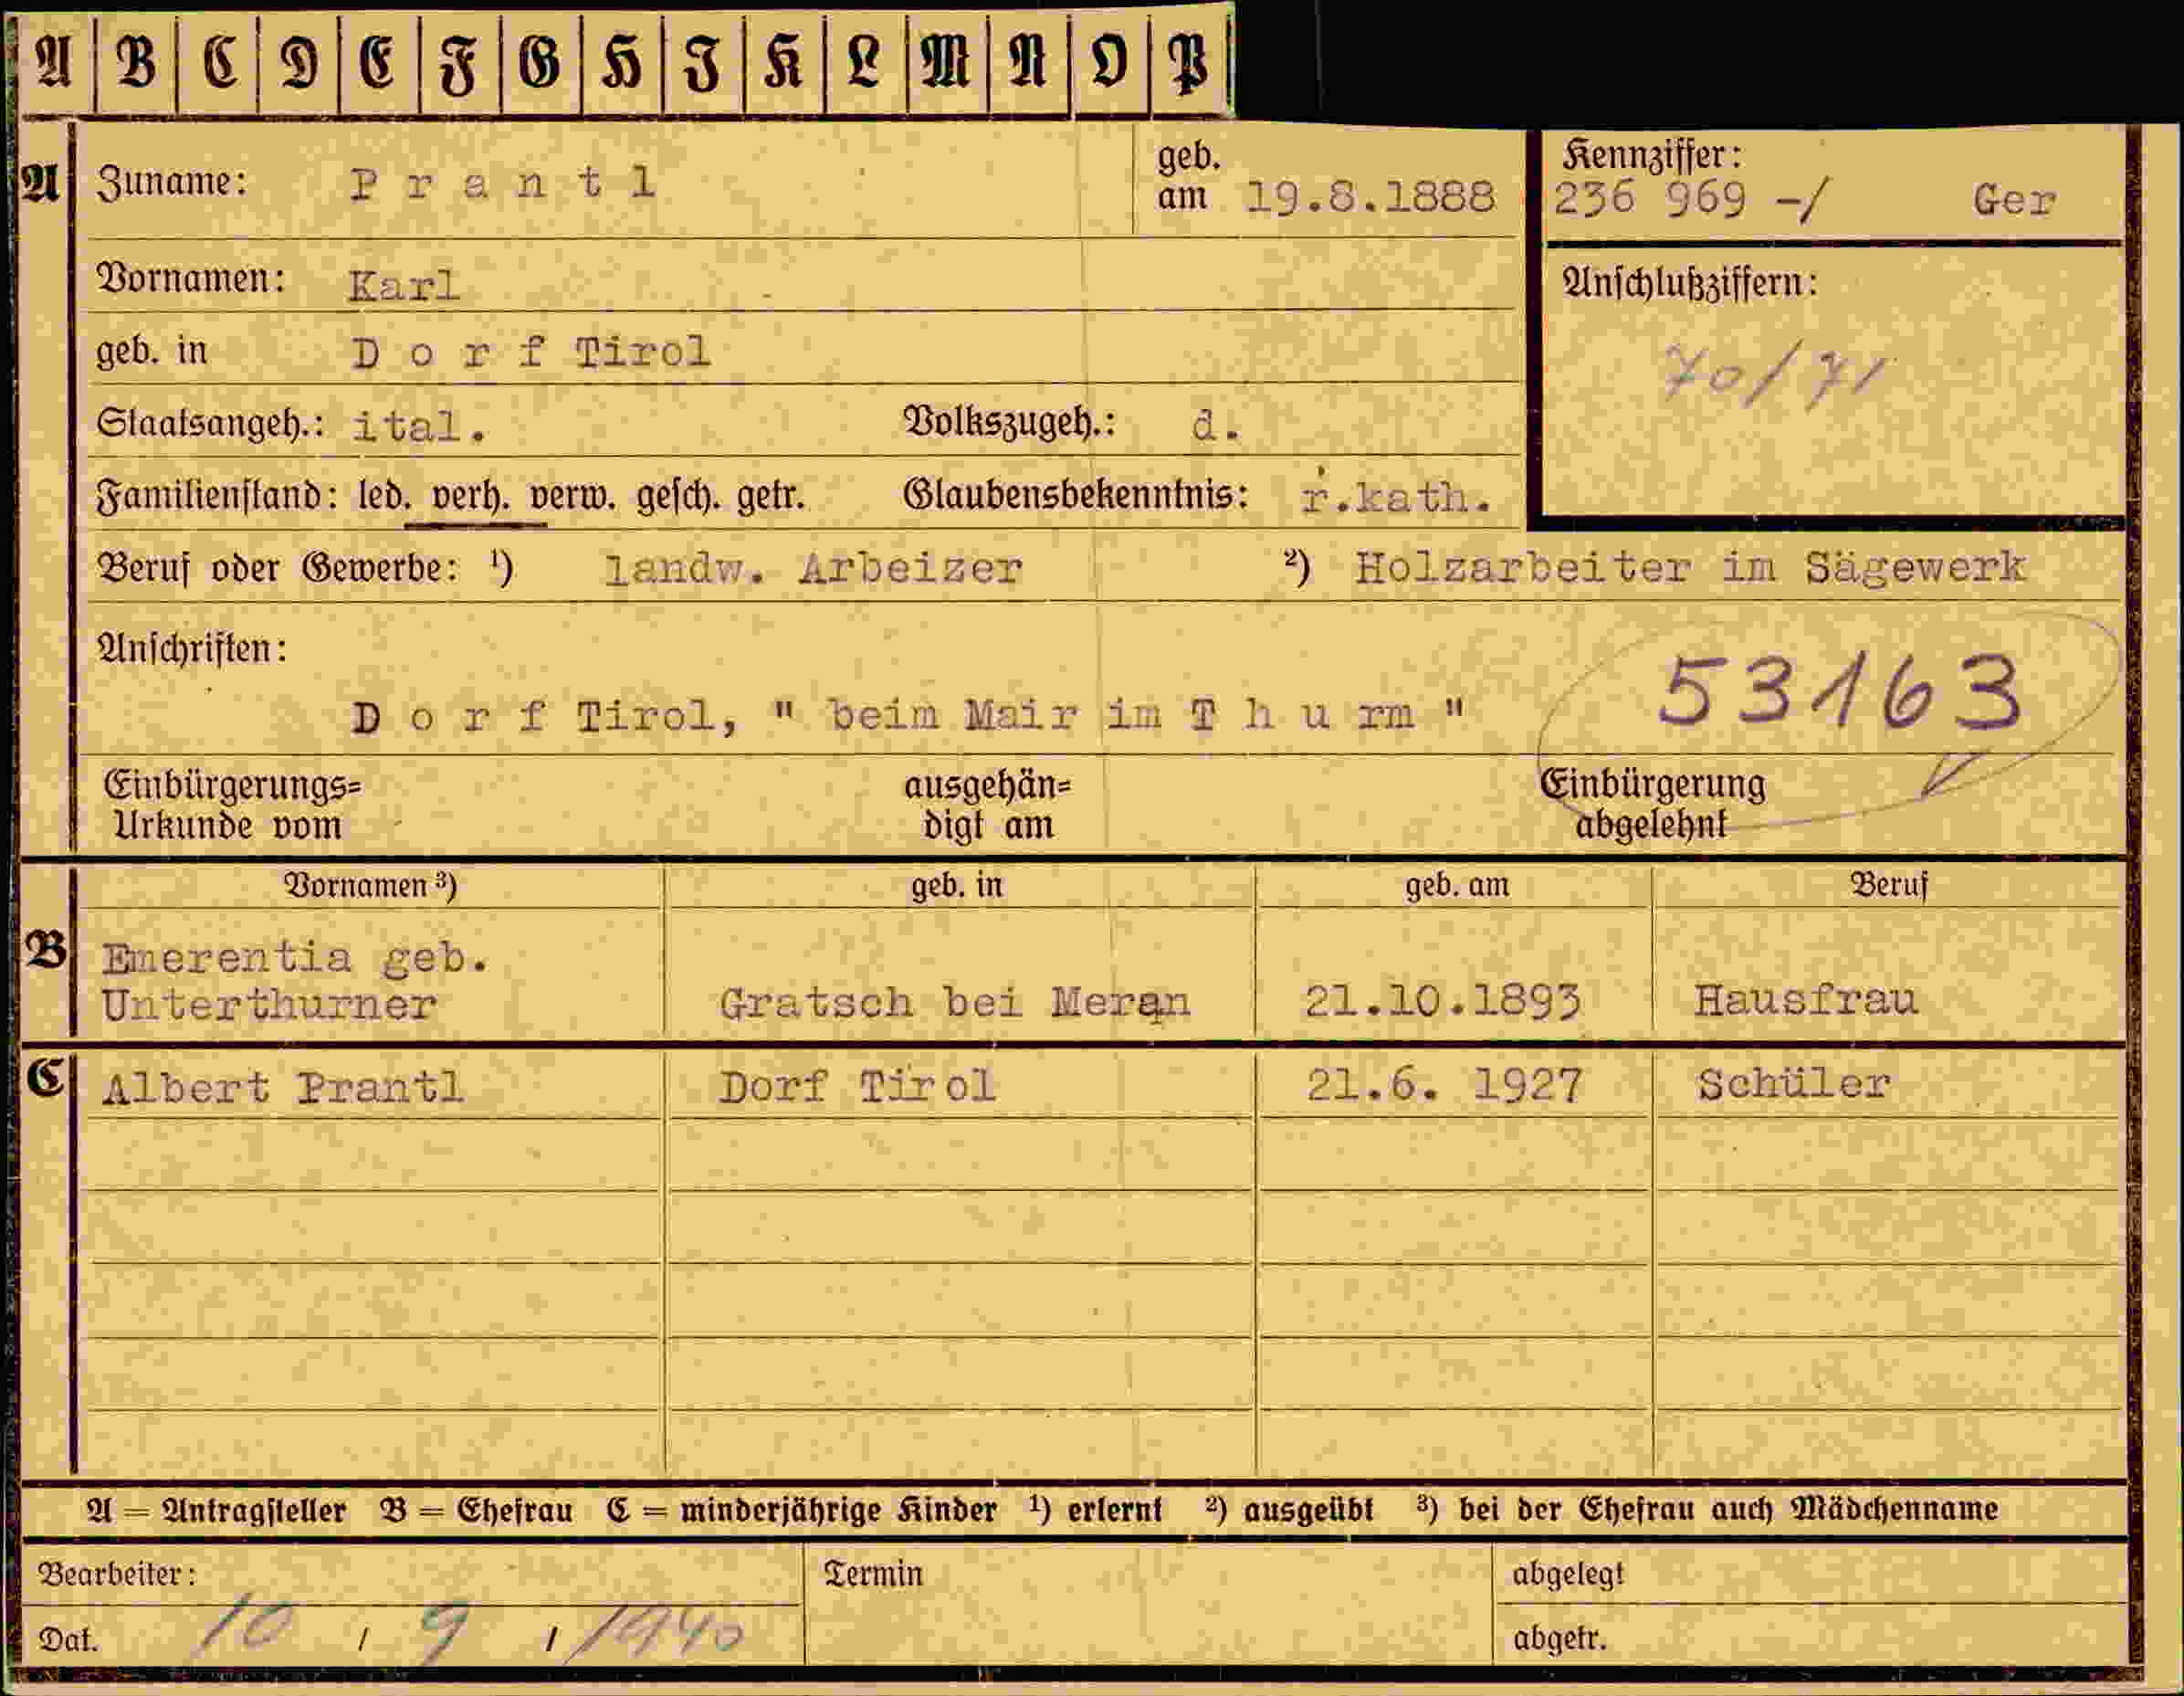 A B C D E F G H I K L M N O P
A Zuname: P r a n t l geb. am 19.8.1888 Kennziffer: 236 969 -/ Ger
Vornamen: Karl Anschlußziffern:
geb. in D o r f Tirol 70/71
Staatsangeh.: ital. Volkszugeh.: d.
Familienstand: led. verh. verw. gesch. getr. Glaubensbekenntnis: r.kath.
Beruf oder Gewerbe: ¹) landw. Arbeizer ²) Holzarbeiter im Sägewerk
Anschriften:
D o r f Tirol, " beim Mair im T h u rm " 53163
Einbürgerungs= ausgehän= Einbürgerung
Urkunde vom digt am abgelehnt
Vornamen ³) geb. in geb. am Beruf
B Emerentia geb.
Unterthurner Gratsch bei Meran 21.10.1893 Hausfrau
C Albert Prantl Dorf Tirol 21.6. 1927 Schüler
A = Antragsteller B = Ehefrau C = minderjährige Kinder ¹) erlernt ²) ausgeübt ³) bei der Ehefrau auch Mädchenname
Bearbeiter: Termin abgelegt
Dat. 10 / 9 / 1940 abgetr.